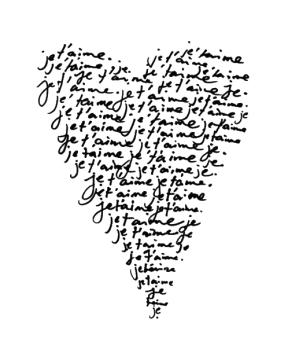 je t'aime. je t'aime
je t'aime. je. je t'aime je t'aime
je t'je t'aime. je t'aime t'aime
je t'aime. je t'aime je t'aime je.
je t'aime je t'aime je t'aime
je t'aime je t'aime je t'aime
je t'aime. je t'aime je t'aime
je t'aime. je t'aime je
je t'aime je t'aime je
je t'aime je t'aime je.
je t'aime je t'aime.
je t'aime je t'aime
je t'aime je t'aime.
je t'aime je
je t'aime je
je t'aime je
je t'aime.
je t'aime
je t'aime
je
t'aime
je